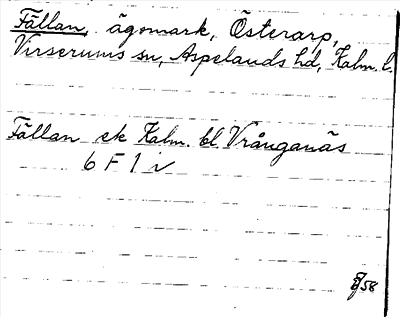 Fällan, ägomark, Österarp,
Virserums sn, Aspelands hd, Kalm. l.
Fällan ek Kalm. bl. Vrånganäs
6 F 1 v
58